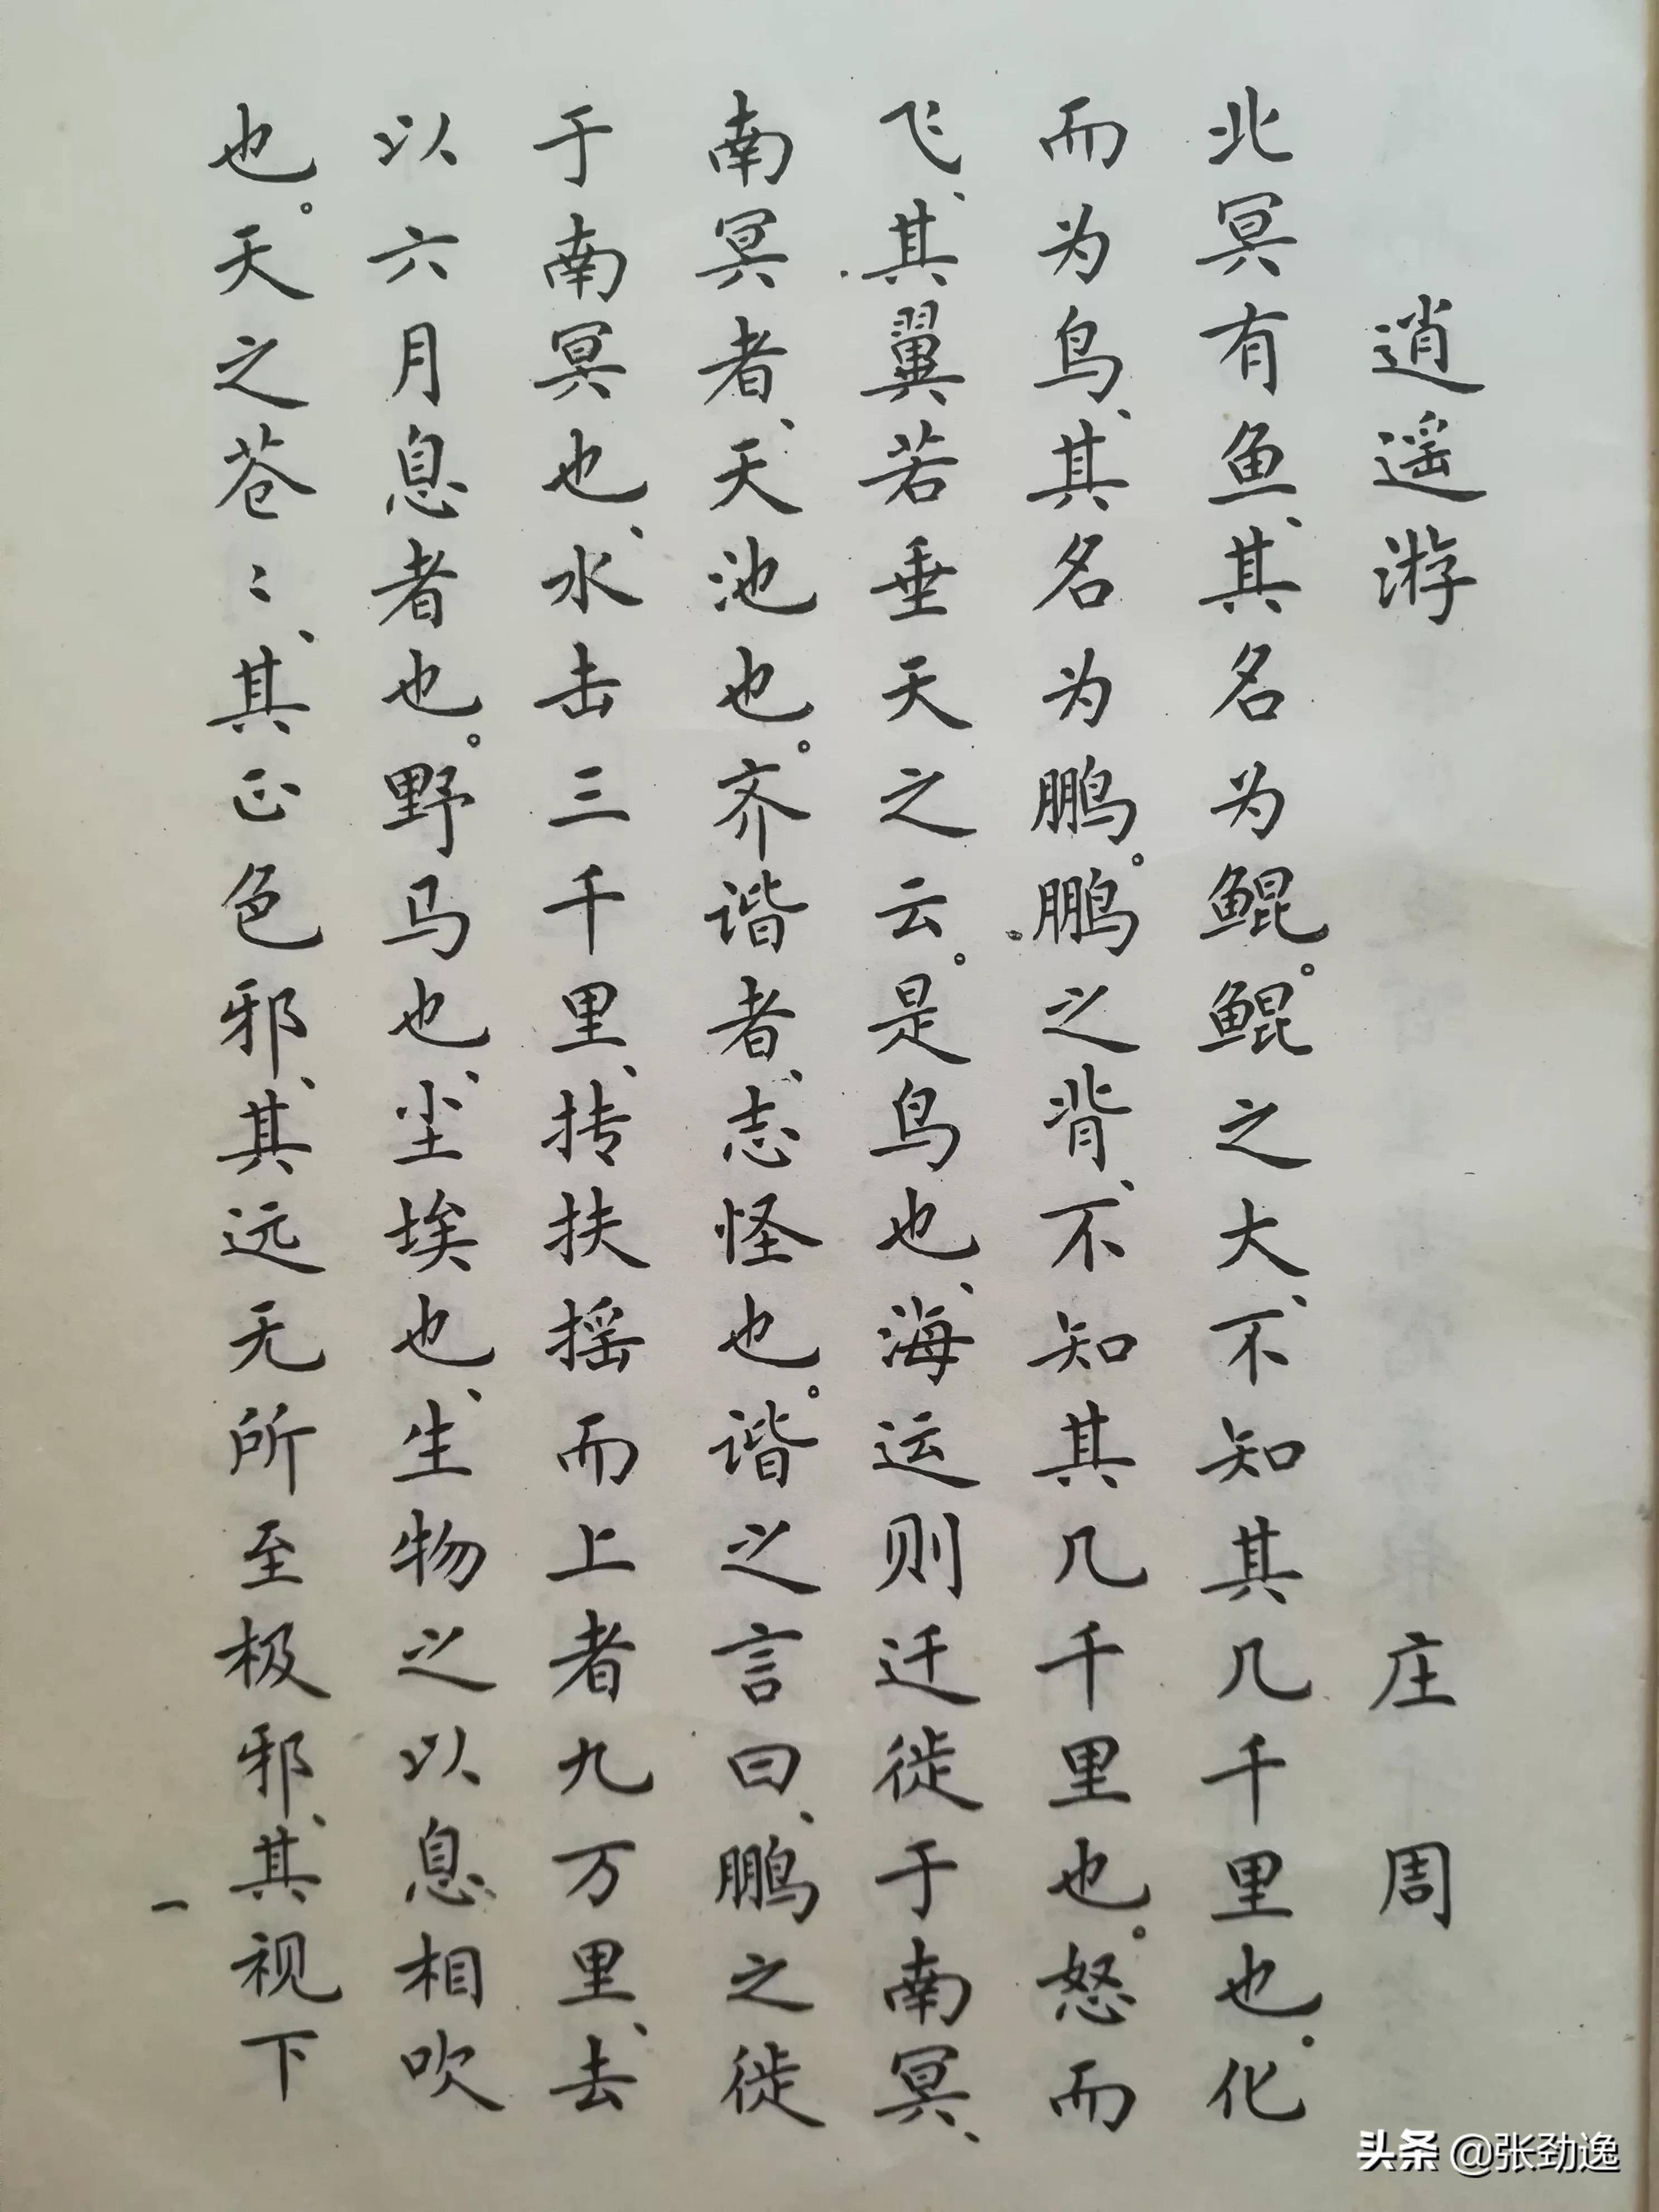 逍遥游 庄周
北冥有鱼、其名为鲲。鲲之大、不知其几千里也。化
而为鸟、其名为鹏。鹏之背、不知其几千里也。怒而
飞、其翼若垂天之云。是鸟也、海运则迁徙于南冥、
南冥者、天池也。齐谐者、志怪也。谐之言曰、鹏之徙
于南冥也、水击三千里、抟扶摇而上者九万里、去
以六月息者也。野马也、尘埃也、生物之以息相吹
也。天之苍〻、其正色邪、其远无所至极邪、其视下
一
头条 @张劲逸